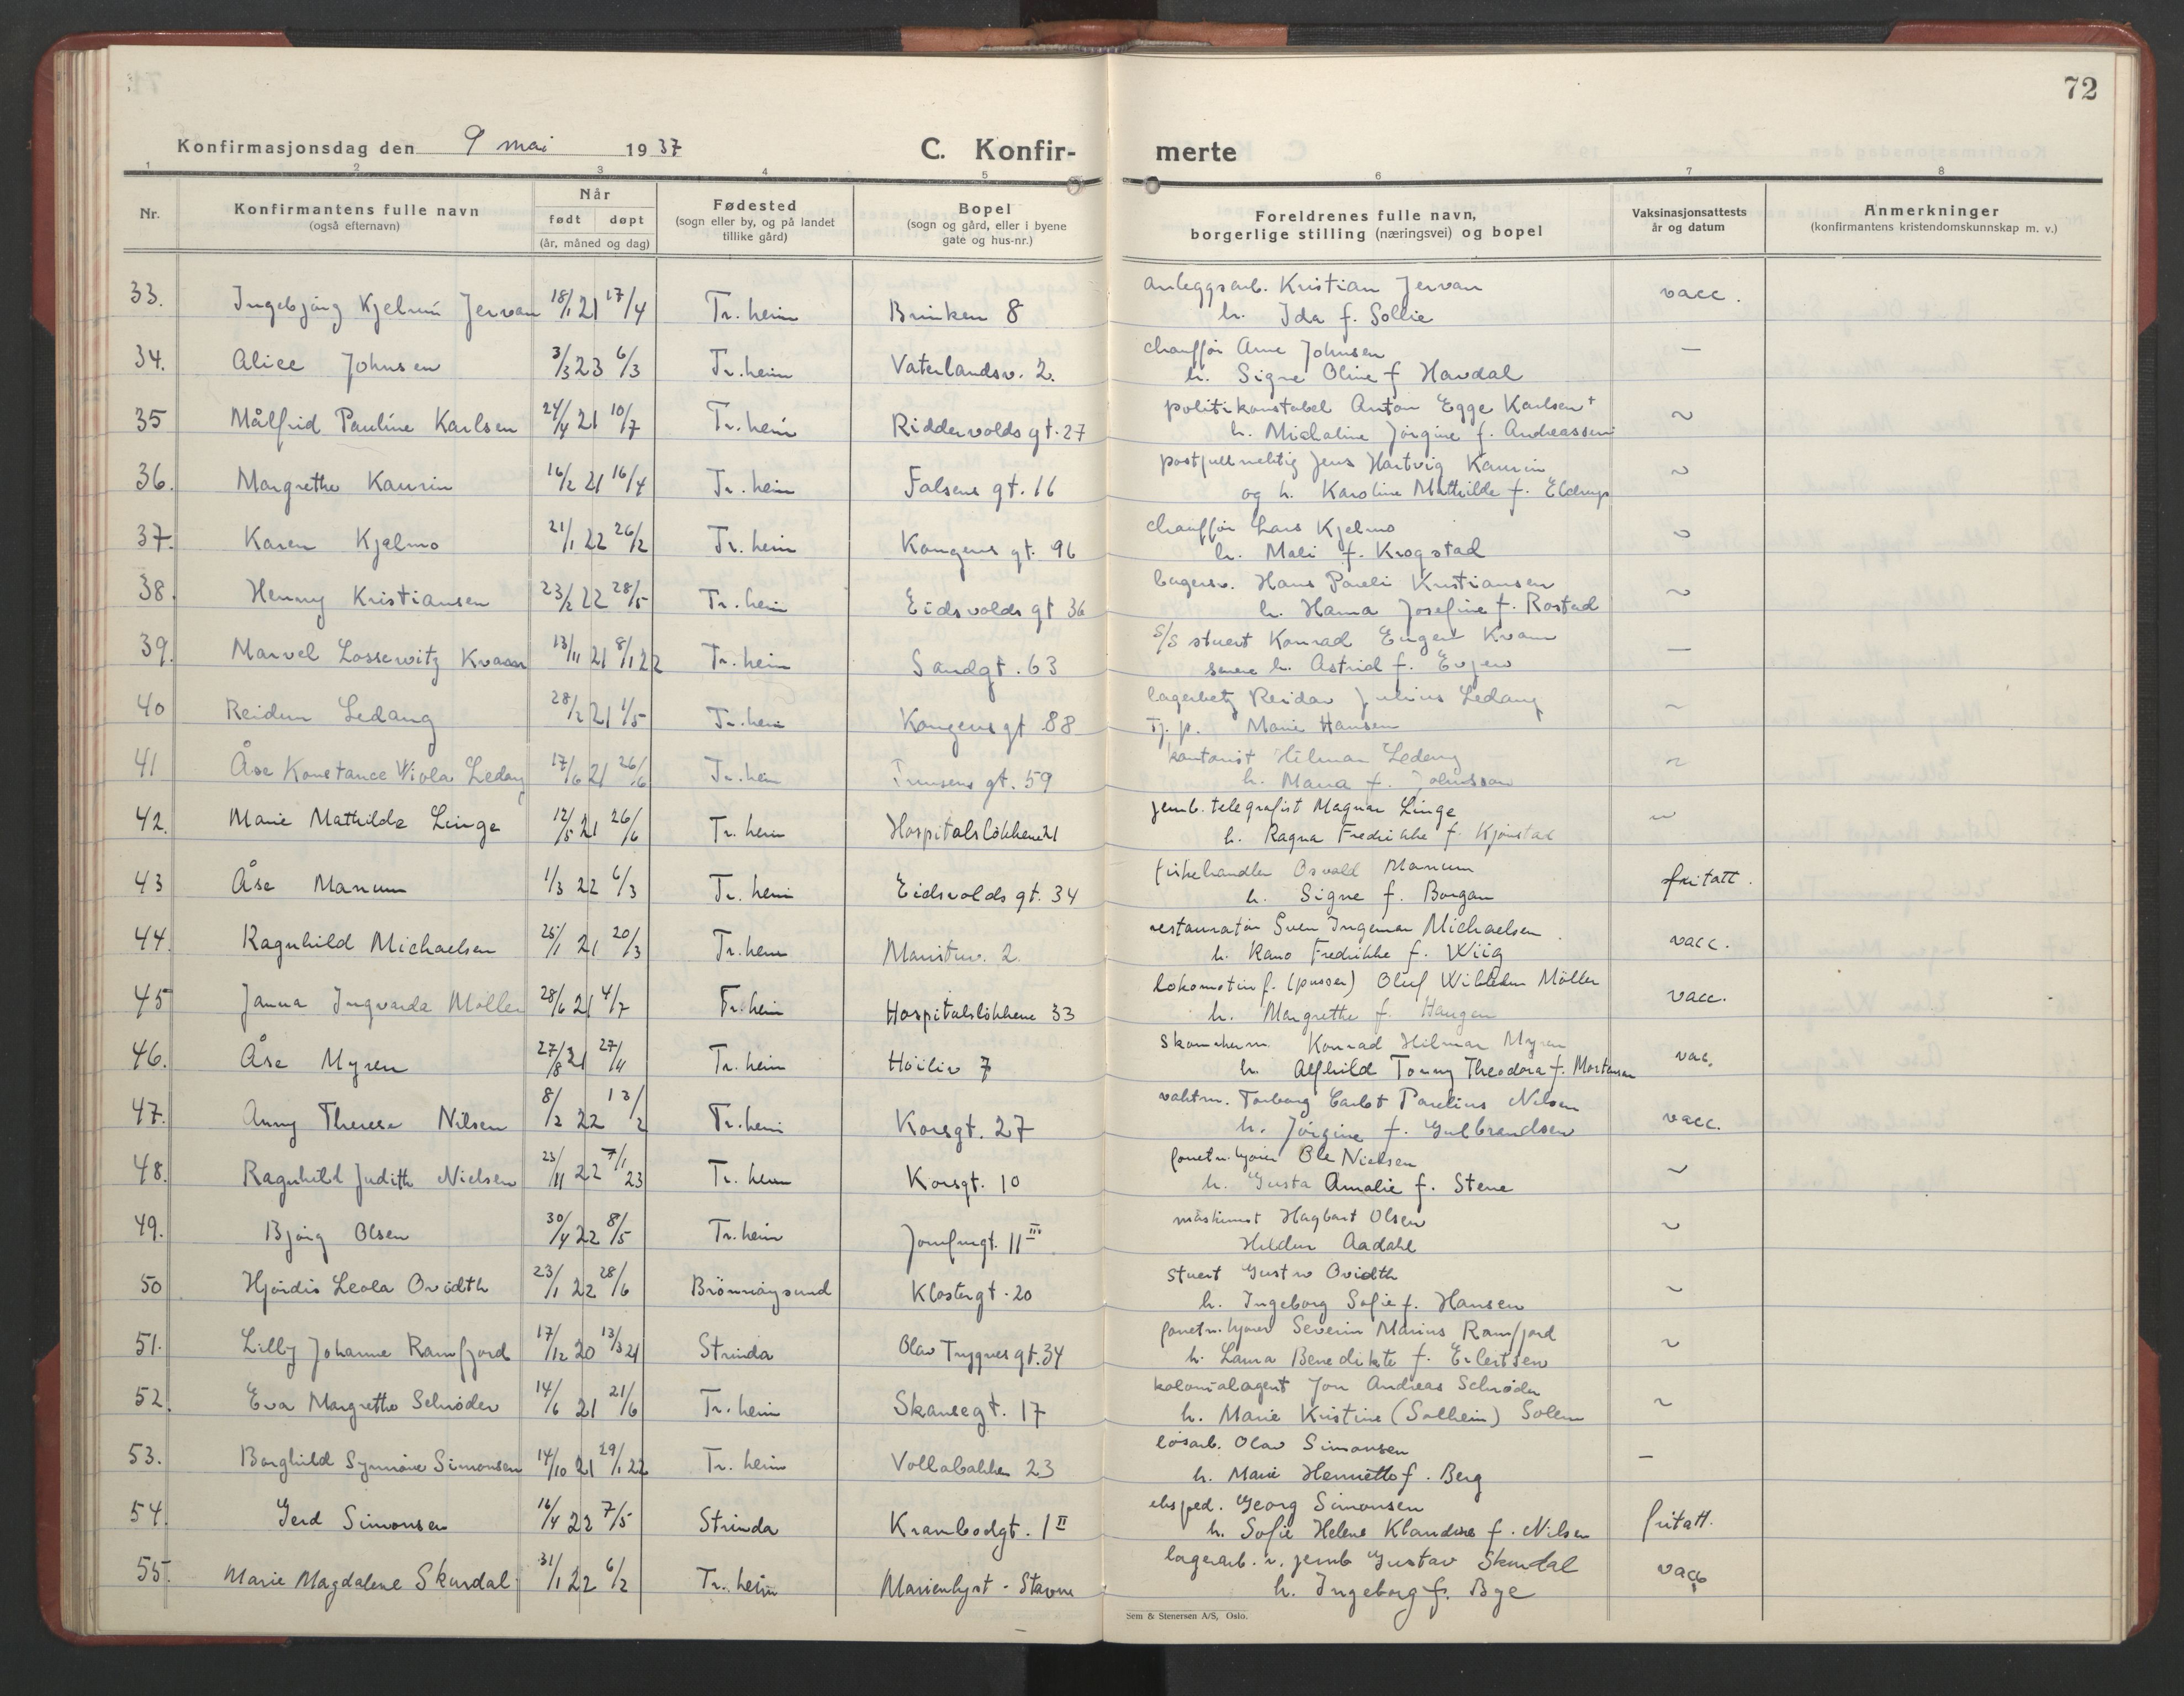 72
Konfirmasjonsdag den 9 mai 1937
C. Konfir-
merte
1 2 3 4 5 6 7 8
Nr.
Konfirmantens fulle navn
(også efternavn)
Når
født døpt
(år, måned og dag)
Fødested
(sogn eller by, og på landet
tillike gård)
Bopel
(sogn og gård, eller i byene
gate og hus-nr.)
Foreldrenes fulle navn,
borgerlige stilling (næringsvei) og bopel
Vaksinasjonsattests
år og datum
Anmerkninger
(konfirmantens kristendomskunnskap m. v.)
33. Ingebjørg Jervan 18/1 21 17/4 Tr.heim 8 anleggsarb. Kristian Jervan vacc.
h. Ida f. Sollie
34. Alice Johnsen 3/3 23 6/3 Tr.heim Vaterlandsv. 2. chauffør Arne Johnsen —
h. Signe Oline f Havdal
35 Målfrid Pauline Karlsen 24/4 21 10/7 Tr.heim Riddervolds gt. 27 politikonstabel Anton Egge Karlsen+ ~
h. Michaline Jørgine f. Andreassen
36. Margrethe Kaurin 16/2 21 16/4 Tr.heim Falsens gt. 16 postfullmektig Jens Hartvig Kaurin ~
og h. Karoline Mathilde f. Eldrup
37. Karen Kjelmo 21/1 22 26/2 Tr.heim Kongens gt. 96 chauffør Lars Kjelmo ~
h. Mali f. Krogstad
38. Henny Kristiansen 23/2 22 28/5 Tr.heim Eidsvolds gt 36 Hans Kristiansen ~
h. Hanna Josefine f. Rostad
39. Marvel Lossewitz Kvaan 13/11 21 8/1 22 Tr.heim Sandgt. 63 S/S stuert Konrad Kvam —
h. Astrid f. Evjen
40 Reidun Ledang 28/2 21 1/5 Tr.heim Kongens gt 88 Reidar Julius Ledang ~
Tj. p. Marie Hansen
41 Åse Konstance Wiola Ledang 17/6 21 26/6 Tr.heim gt. 59 kontorist Hilmar Ledang ~
h. f.
42. Marie Mathilde Linge 12/5 21 26/6 Tr.heim Hospitalsløkkene 21 jernb. telegrafist Magnar Linge ~
h. Ragna Fredrikke f. Kjønstad
43 Åse Manum 1/3 22 6/3 Tr.heim Eidsvolds gt. 34 fiskehandler Osvald Manum fritatt.
h. Signe f. Borgan
44. Ragnhild Michaelsen 25/1 21 20/3 Tr.heim 2. restauratør Sven Ingemar Michaelsen vacc.
h. Fredrikke f. Wiig
45 Janna Ingvarda Møller 28/6 21 4/7 Tr.heim Hospitalsløkkene 33 lokomotivf. (pusser) Oluf Møller vacc.
h. Margrethe f. Haugen
46. Åse Myren 27/8 21 27/11 Tr.heim Høiliv 7 Konrad Hilmar Myren vac.
h. Alfhild Tonny Theodora f. Mortensen
47. Anny Therese Nilsen 8/2 22 13/2 Tr.heim Korsgt. 27 vaktm. Torborg Carlot Paulius Nilsen vacc.
h. Jørgine f. Gulbrandsen
48. Ragnhild Judith Nielsen 23/11 22 7/1 23 Tr.heim Korsgt. 10 Ole Nielsen ~
h. Gusta Amalie f. Stene
49. Bjørg Olsen 30/4 22 8/5 Tr.heim Jomfrugt. 11 III maskinist Hagbart Olsen ~
Hildur Aadahl
50 Hjørdis Leola Ovidth 23/1 22 28/6 Brønnøysund Klostergt. 20 stuert Gustav Ovidth ~
h. Ingeborg Sofie f. Hansen
51. Lilly Johanne Ramfjord 17/12 20 13/3 21 Strinda Olav Trygves gt. 34 Severin Marius Ramfjord ~
h. Laura Benedikte f. Erlertsen
52. Eva Margrethe Schrøder 14/6 21 21/6 Tr.heim Skansegt. 17 kolonialagent Jon Andreas Schrøder ~
h. Marie Kristine (Solheim) Solem
53. Borghild Synnøve Simonsen 14/10 21 29/1 22 Tr.heim Vollabakken 23 løsarb. Olav Simonsen —
h. Marie Henriette f. Berg
54. Gerd Simonsen 16/4 22 7/5 Strinda Krambodgt. 1 II eksped. Georg Simonsen fritatt.
h. Sofie Helene Klaudine f. Nilsen
55. Marie Magdalene Skurdal 31/1 22 6/2 Tr.heim Marienlyst - Stavne lagerarb. v. jernb Gustav Skurdal vacc
h. Ingeborg f. Bye
Sem & Stenersen A/S, Oslo.